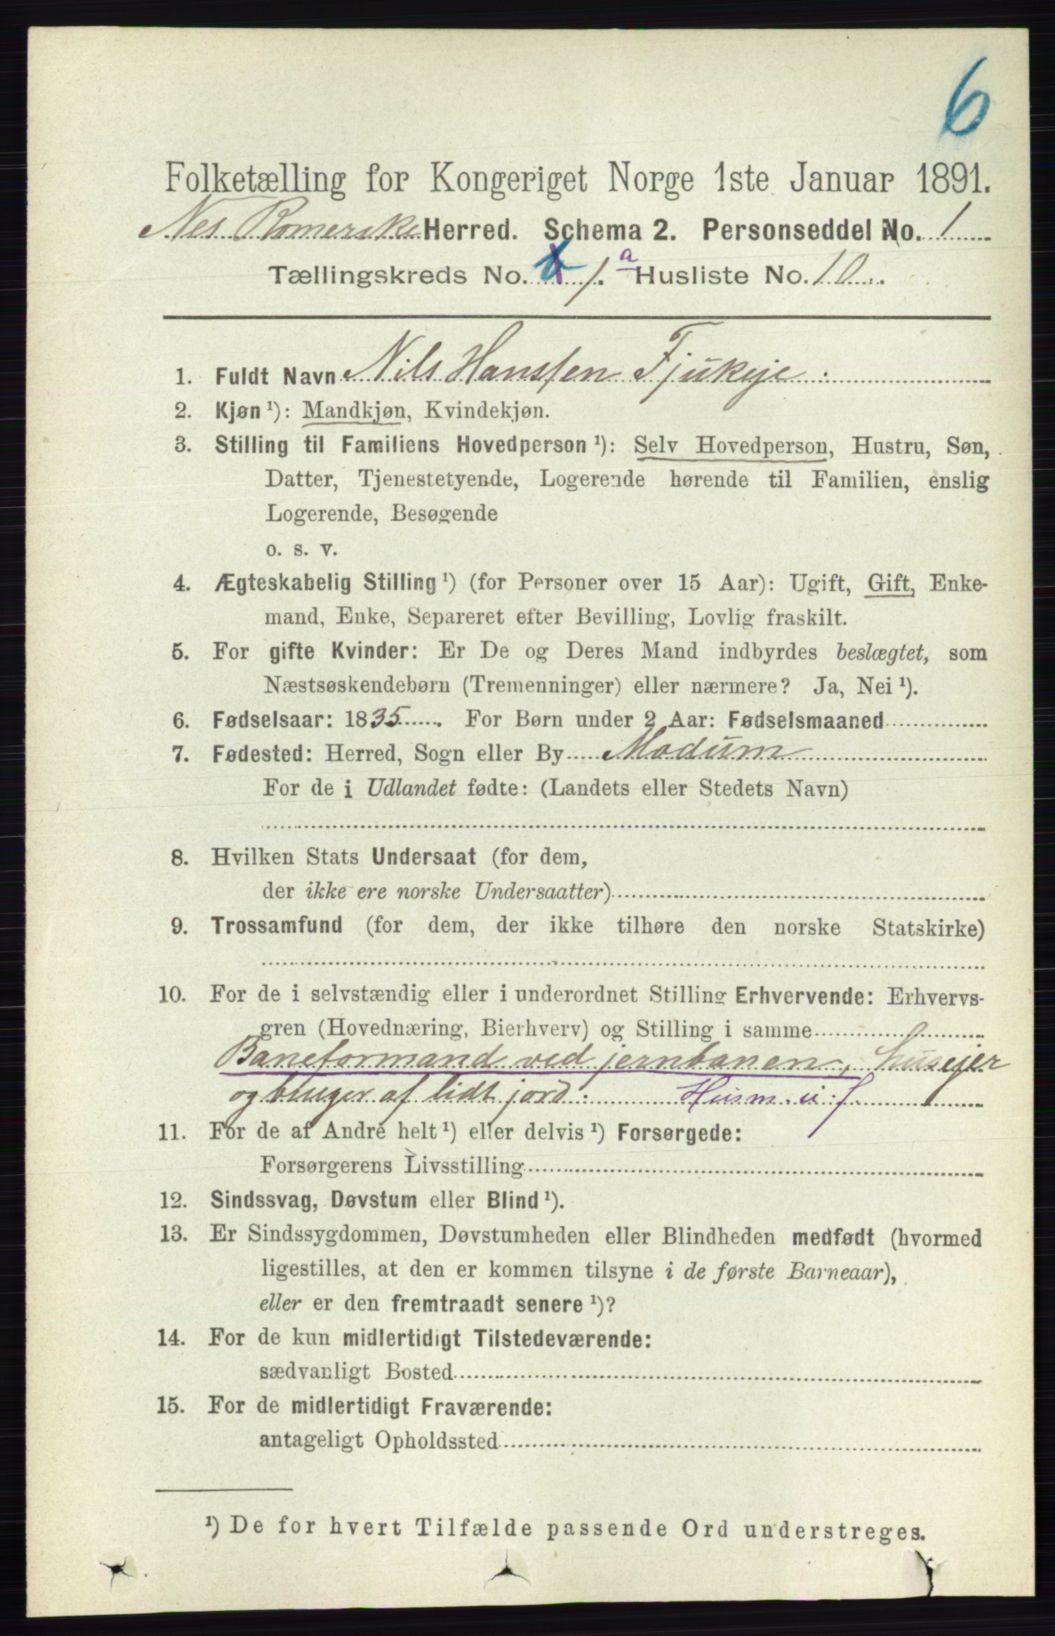 6
Folketælling for Kongeriget Norge 1ste Januar 1891.
Nes Romerike Herred. Schema 2. Personseddel No. 1
Tællingskreds No. 1. a Husliste No. 10
1. Fuldt Navn Nils Hanssen
2. Kjøn ¹): Mandkjøn, Kvindekjøn.
3. Stilling til Familiens Hovedperson ¹): Selv Hovedperson, Hustru, Søn,
Datter, Tjenestetyende, Logerende hørende til Familien, enslig
Logerende, Besøgende
o. s. v.
4. Ægteskabelig Stilling ¹) (for Personer over 15 Aar): Ugift, Gift, Enke-
mand, Enke, Separeret efter Bevilling, Lovlig fraskilt.
5. For gifte Kvinder: Er De og Deres Mand indbyrdes beslægtet, som
Næstsøskendebørn (Tremenninger) eller nærmere? Ja, Nei ¹).
6. Fødselsaar: 1835. For Børn under 2 Aar: Fødselsmaaned
7. Fødested: Herred, Sogn eller By Modum
For de i Udlandet fødte: (Landets eller Stedets Navn)
8. Hvilken Stats Undersaat (for dem,
der ikke ere norske Undersaatter)
9. Trossamfund (for dem, der ikke tilhøre den norske Statskirke)
10. For de i selvstændig eller i underordnet Stilling Erhvervende: Erhvervs-
gren (Hovednæring, Bierhverv) og Stilling i samme
Baneformand ved jernbanen, huseier
og bruger af lidt jord. Husm. u. j.
11. For de af Andre helt ¹) eller delvis ¹) Forsørgede:
Forsørgerens Livsstilling
12. Sindssvag, Døvstum eller Blind ¹).
13. Er Sindssygdommen, Døvstumheden eller Blindheden medfødt (hvormed
ligestilles, at den er kommen tilsyne i de første Barneaar),
eller er den fremtraadt senere ¹)?
14. For de kun midlertidigt Tilstedeværende:
sædvanligt Bosted
15. For de midlertidigt Fraværende:
antageligt Opholdssted
¹) De for hvert Tilfælde passende Ord understreges.